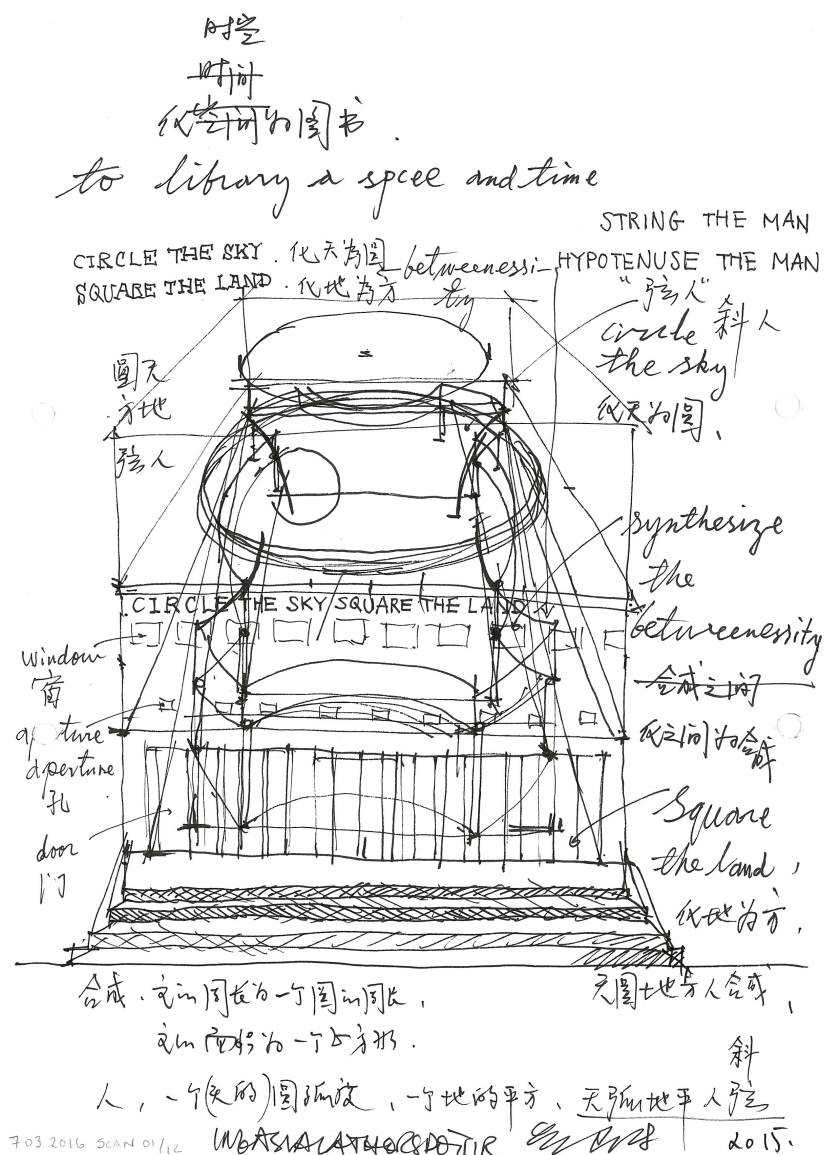 时空
时间
化空间为圖书.
to library a spcee and time
STRING THE MAN
CIRCLE THE SKY. 化天为圆
betweenessi-
ty
HYPOTENUSE THE MAN
SQUARE THE LAND. 化地为方
"弦人"
斜人
circle
the sky
化天为圆、
圆天
方地
弦人
synthesize
the
betweenessity
合成之间
化之间为合成
CIRCLE THE SKY SQUARE THE LAND
window
窗
aperture
aperture
孔
door
门
Square
the land,
化地为方.
合成.
周长为一个圆
周长,
面积为一个正方形.
天圆地方人合成,
斜
人, 一个(天的)圆弧度, 一个地的平方、天弧地平人弦
2015.
703 2016 SCAN 01/12